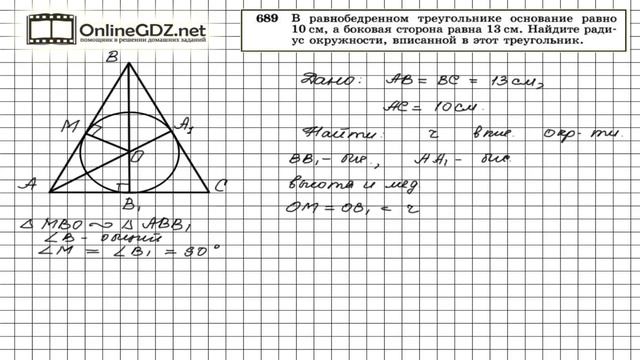 OnlineGDZ.net
помощник в решении домашних заданий
689 В равнобедренном треугольнике основание равно
10 см, а боковая сторона равна 13 см. Найдите ради-
ус окружности, вписанной в этот треугольник.
B
M
A₁
O
A
B₁
C
Дано: AB = BC = 13 см,
AC = 10 см.
Найти: r впис. окр-ти.
BB₁ - бис., AA₁ - бис.
высота и мед
OM = OB₁ = r
△ MBO ~ △ ABB₁
∠B - общий
∠M = ∠B₁ = 90°